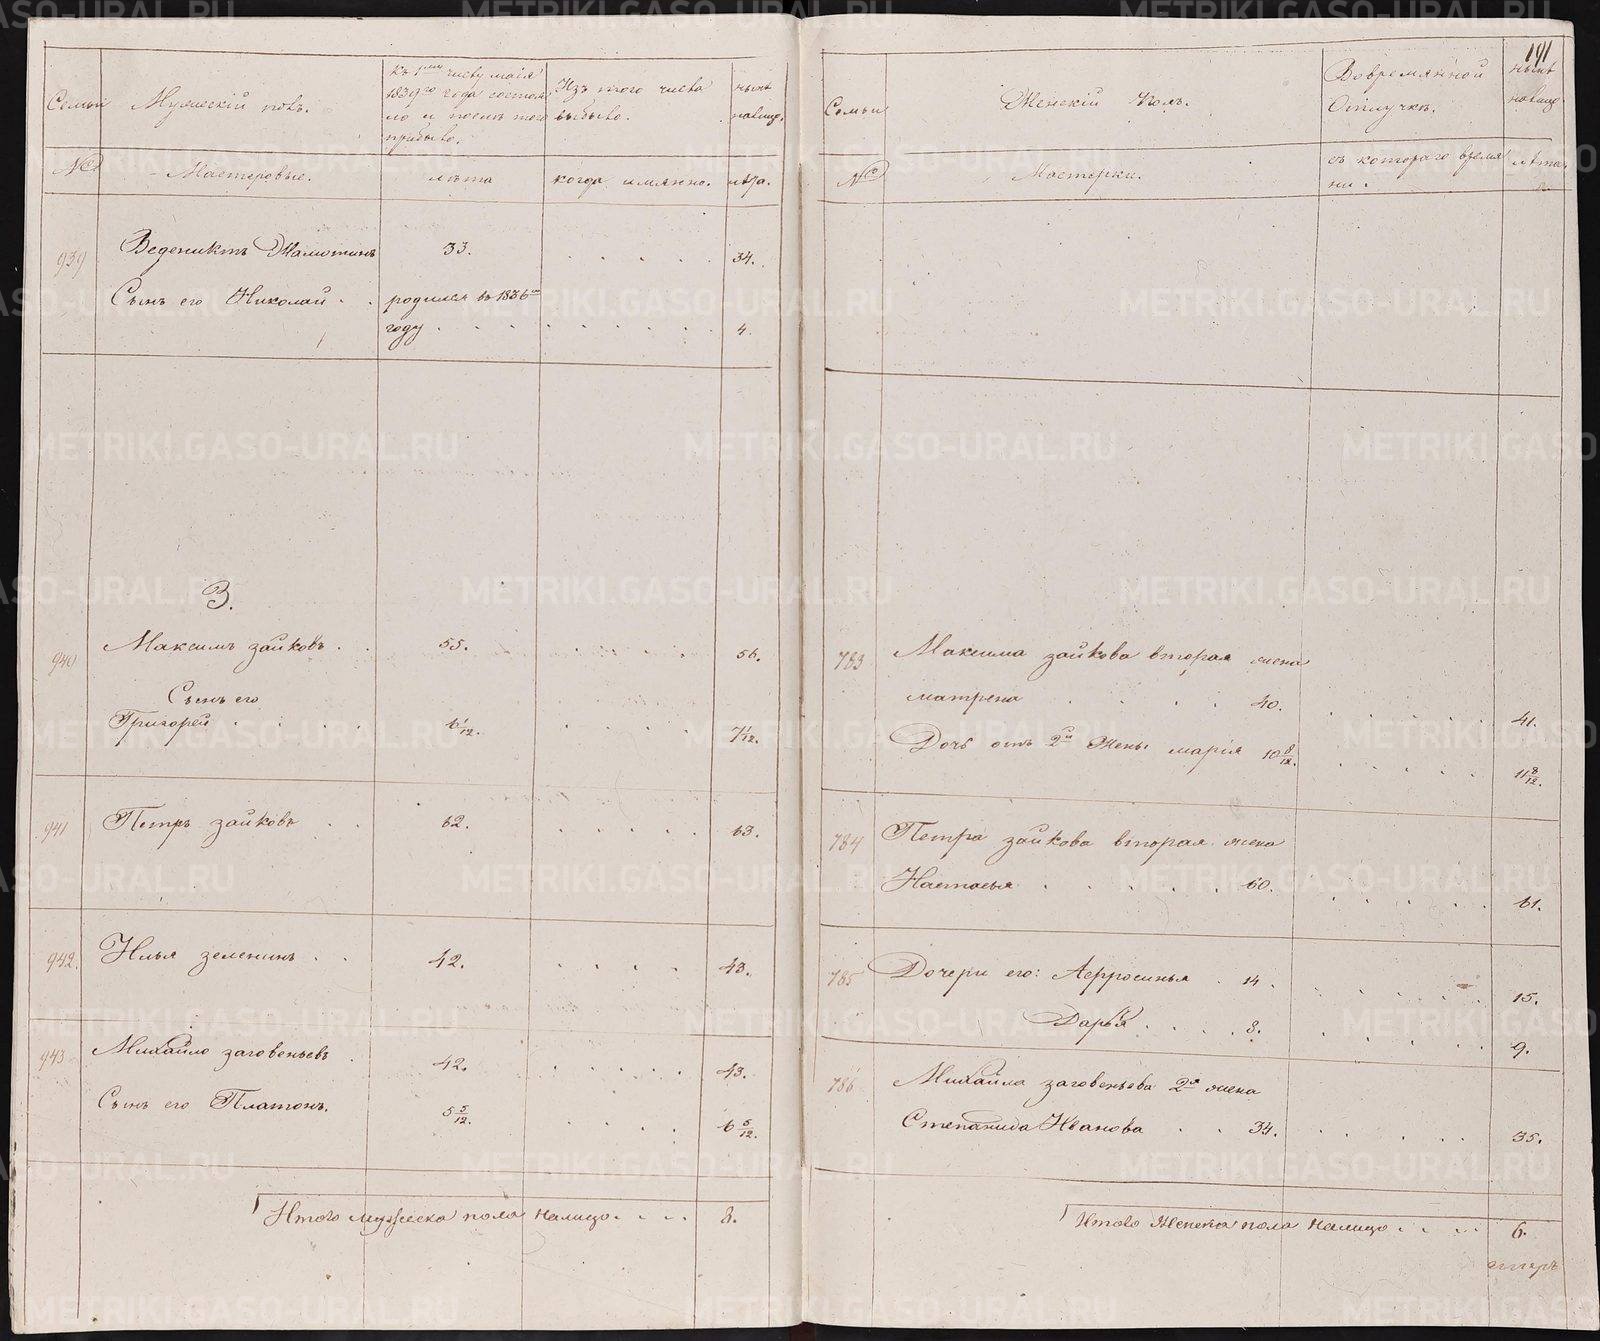 Семьи
Мужескій полъ.
Къ 1му числу маія
1839го года состоя
ло и послѣ того
прибыло.
Изъ того числа
выбыло.
нынѣ
налицо.
№
Мастеровые.
лѣта
когда имянно.
лѣта.
939
Веденихтъ Жамотинъ
33.
34.
Сынъ его Николай
родился въ 1836м
году
4.
З.
940
Максимъ зайковъ
55.
56.
Сынъ его
Григорей
6 1/12.
7 1/12.
941
Петръ зайковъ
62.
63.
942.
Илья зеленинъ
42.
43.
943
Михайло заговеньевъ
42.
43.
Сынъ его Платонъ.
5 5/12.
6 5/12.
Итого мужеска пола налицо
8.
191
Семьи
Женскій полъ.
Вовремянной
Отлучкѣ.
нынѣ
налицо
№
Мастерки.
съ котораго время
ни.
лѣта.
783
Максима зайкова вторая жена
матрена
40.
41.
Дочь отъ 2й жены марія 10 8/12.
11 8/12.
784
Петра зайкова вторая жена
Настасья
60.
61.
785
Дочери его: Аффросинья
14.
15.
Дарья
8.
9.
786
Михайла заговеньева 2я жена
Степанида Иванова
34.
35.
Итого Женска пола налицо
6.